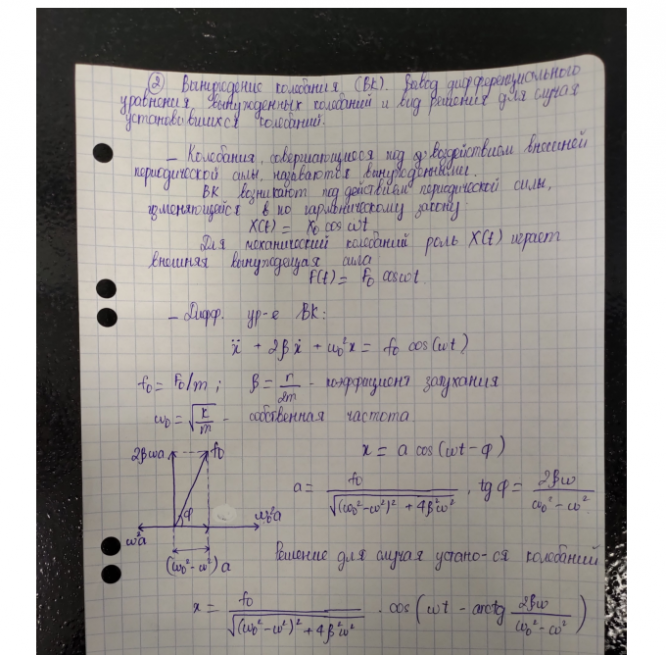 ② Вынужденные колебания (ВК). Вывод дифференциального
уравнения вынужденных колебаний и вид решения для случая
установившихся колебаний.
– Колебания, совершающиеся под воздействием внешней
периодической силы, называются вынужденными.
ВК возникают под действием периодической силы,
изменяющейся по гармоническому закону:
X(t) = X₀ cos ωt
Для механический колебаний роль X(t) играет
внешняя вынуждающая сила
F(t) = F₀ cos ωt
– Дифф. ур-е ВК:
ẍ + 2βẋ + ω₀²x = f₀ cos(ωt)
f₀ = F₀/m ; β = r/2m - коэффициент затухания
ω₀ = √(k/m) - собственная частота
2βωa f₀ x = a cos(ωt - φ)
a = f₀/√((ω₀² - ω²)² + 4β²ω²) , tg φ = 2βω/(ω₀² - ω²)
φ
ω²a ω₀²a
Решение для случая устано-ся колебаний
(ω₀² - ω²)a
x = f₀/√((ω₀² - ω²)² + 4β²ω²) · cos(ωt - arctg 2βω/(ω₀² - ω²))